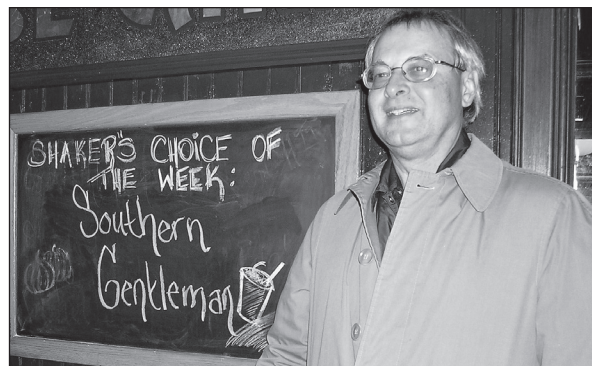 SHAKER'S CHOICE OF
THE WEEK:
Southern
Gentleman